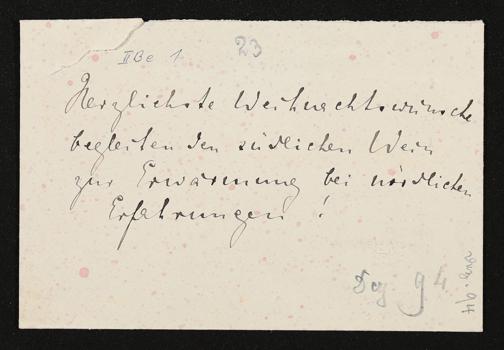 II Be 1
23
Herzlichste Weihnachtswünsche
begleiten den südlichen Wein
zur Erwärmung bei nördlichen
Erfahrungen !
Dez 94